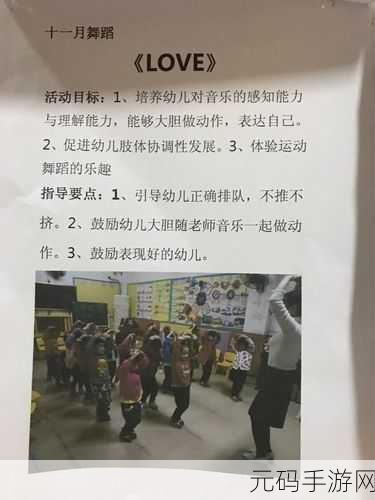 十一月舞蹈
《LOVE》
活动目标：1、培养幼儿对音乐的感知能力
与理解能力，能够大胆做动作，表达自己。
2、促进幼儿肢体协调性发展。3、体验运动
舞蹈的乐趣
指导要点：1、引导幼儿正确排队，不推不
挤。2、鼓励幼儿大胆随老师音乐一起做动
作。3、鼓励表现好的幼儿。
元码手游网